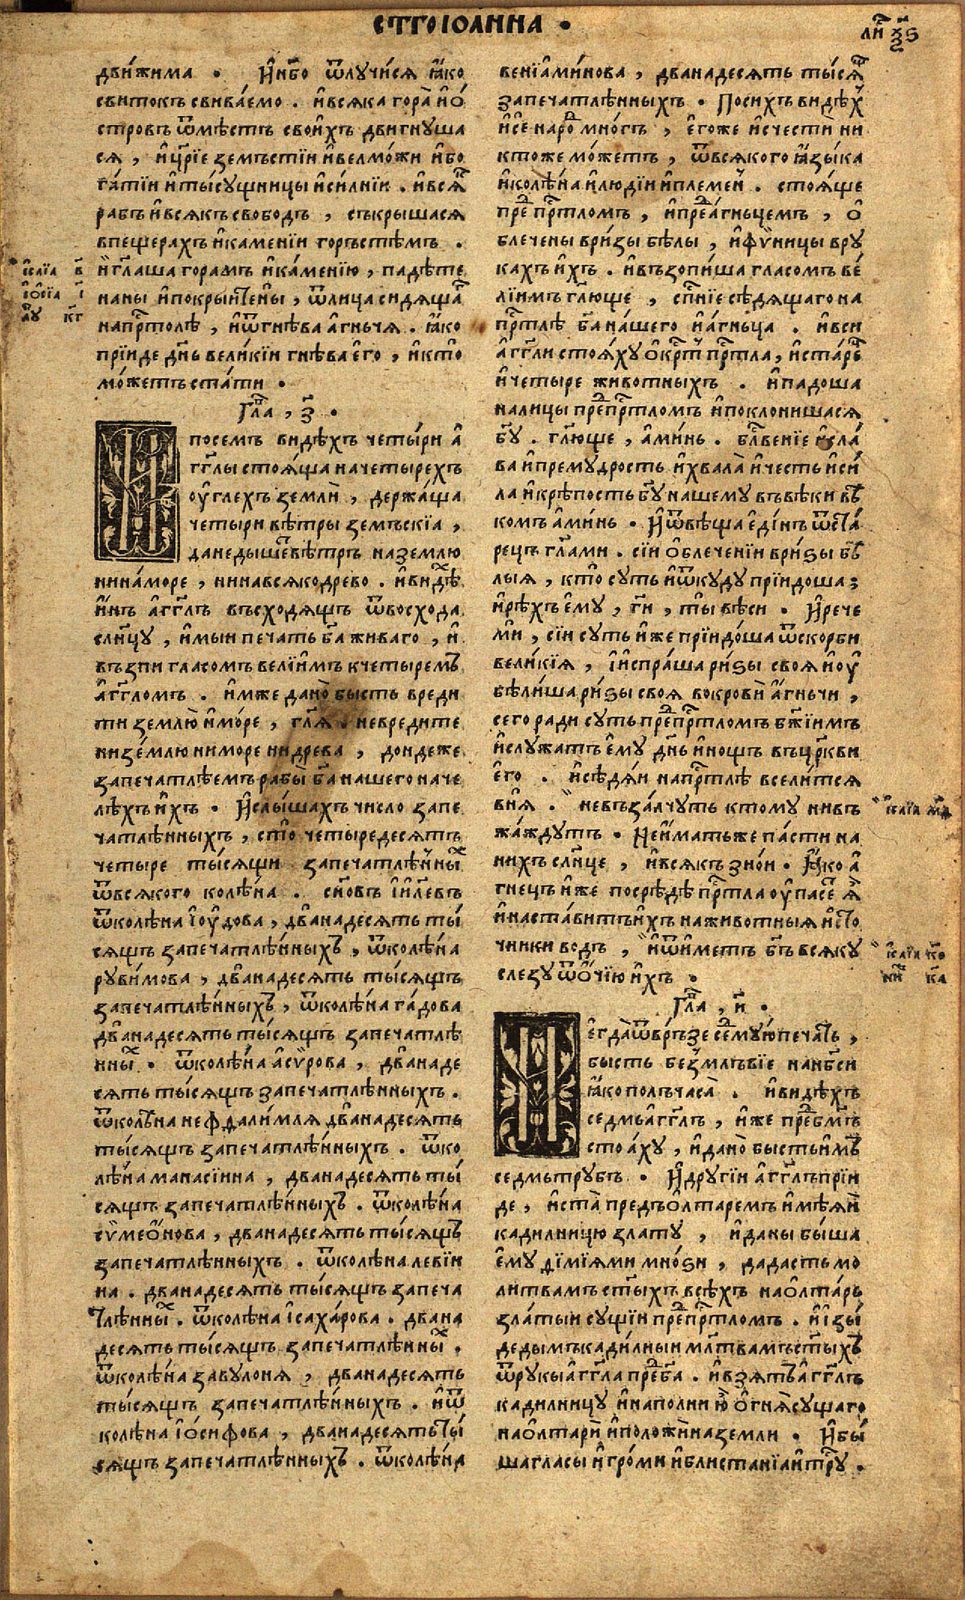 СТ҃ГО ІОАННА ·
движима · И҆ н҃бо ѿлꙋчисѧ ꙗ҆ко
свитокъ свива́емо . и҆ всѧка гора̀ и҆ ѻ҆́
стровъ ѿ мѣстъ свои́хъ двигнꙋша
сѧ , и҆ цр҃їе земъстїи и҆ велмо́жи и҆ бо
га́тїи и҆ ты́сꙋщницы и҆ си́лнїи . и҆ всѧ̑
рабъ и҆ всѧкъ свободъ , съкрышасѧ
впещерахъ и҆ камении горъстѣмъ .
и҆ гл҃аша горамъ и҆ ка́менїю , пад́ѣте
на ны и҆ покры́йте ны̀ , ѿ лица сидѧща
на прⷭ҇толѣ , и҆ ѿ гнѣва а҆гньчѧ . ꙗ҆ко
прїиде дн҃ь вели́кїи гнѣва є҆го , и҆ кто̀
мо́жетъ ста́ти ·
Гла҃ , з҃ ·
И посемъ видѣхъ четы́ри а҆́
гг҃лы стоѧ́ща на четырехъ
ѹ҆глехъ землѝ , держа́ща
четыри вѣтры земъскїа ,
да не дыше́тъ вѣтръ на землю
ни на́ море , ни на всѧко древо . и҆ видѣⷯ
и҆́нъ а҆гг҃лъ въсходѧщъ ѿ восхода
сл҃нцꙋ , и҆мыи печать б҃а живаго , и҆
въѕпи гласомъ велїимъ к четыремъ
а҆гг҃ломъ . и҆мже дано̀ бысть вреди
ти землю̀ и҆ мо́ре , гл҃ѧ . не вредите
ни зе́млю ни море ни древа , дондеже
запечатлѣемъ рабы̀ б҃а нашего на че
лѣхъ и҆́хъ · И҆ слы́шахъ число запе
чатлѣнныхъ , сто̀ четыредесѧтъ
четыре ты́сѧщи запечатлѣнныⷯ
ѿ всѧкого колѣна . сн҃овъ і҆и҃левъ
ѿ колѣна і҆ꙋ́дова , дванадесѧть ты́
сѧщъ запечатлѣнныхъ , ѿ колѣна
рꙋви́мова , дванадесѧть ты́сѧщъ
запечатлѣнныхъ , ѿ колѣна га́дова
дванадесѧть ты́сѧщъ запечатлѣ
нныⷯ . ѿ колѣна а҆си́рова , дванаде
сѧть ты́сѧщъ запечатлѣнныхъ .
ѿ колѣна неѳдали́млѧ дванадесѧть
ты́сѧщъ запечатлѣнныхъ . ѿ ко
лѣна манасїина , дванадесѧть ты́
сѧщъ запечатлѣнныхъ . ѿ колѣна
сѷмео́нова , дванадесѧть ты́сѧщъ
запечатлѣнныхъ . ѿ колѣна левїи
на . дванадесѧть ты́сѧщъ запеча
тлѣнныⷯ . ѿ колѣна і҆саха́рова . двана
десѧть ты́сѧщъ запечатлѣнныⷯ .
ѿ колѣна завꙋлонѧ , дванадесѧть
ты́сѧщъ запечатлѣнныхъ . и҆ ѿ
колѣна і҆о́сифова , дванадесѧть ты́
сѧщъ запечатлѣнныхъ . ѿ колѣна
венїами́нова , дванадесѧть ты́сѧⷳ
запечатлѣнныхъ · По сихъ видѣⷯ
и҆ се наро́ⷣ мно́гъ , є҆гоже и҆счестѝ ни
ктоже мо́жетъ , ѿ всѧкого ꙗ҆зы́ка
и҆ колѣ́на и҆ люди́и и҆ племе́н . стоѧще
преⷣ прⷭ҇тломъ , и҆ преⷣ а҆гньцемъ , ѻ҆
блечены в ри́зы бѣлы , и҆ фѵ́ницы в рꙋ
кахъ и҆́хъ . и҆ въѕопи́ша гласомъ ве́
лїимъ гл҃юще , сп҃нїе сѣдѧщаго на
прⷭ҇тлѣ б҃а на́шего и҆ а҆́гньца . и҆ вси
а҆гг҃ли стоѧ́хꙋ ѻ҆крⷭ҇тъ прⷭ҇тла , и҆ ста́рⷰ҇ѣ
и҆ четыре животныхъ . и҆ падоша
на лицы преⷣ прⷭ҇тломъ и҆ поклонишасѧ
б҃ꙋ . гл҃юще , а҆ми́нь . бл҃вение и҆ сла́
ва и҆ премꙋдрость и҆ хвала̀ и҆ честь и҆ си́
ла и҆ крѣпость б҃ꙋ нашемꙋ въ вѣки вѣ
комъ а҆ми́нь · И҆ ѿвѣща є҆ди́нъ ѿ ста́
рецъ гл҃а ми . сїи ѻ҆блеченїи в ри́ѕы бѣ
лыѧ , кто̀ сꙋть и҆ ѿкꙋдꙋ прїидоша ;
и҆ рѣхъ є҆мꙋ , г҃и , ты̀ вѣси · И҆ рече
мѝ , сїи сꙋть и҆же прїидо́ша ѿ скорби
великїѧ , и҆ и҆спра́ша ри́ѕы своѧ̀ и҆ ѹ҆
бѣли́ша ри́ѕы своѧ̀ во крови а҆́гньчи ,
сего ради сꙋть преⷣ прⷭ҇тломъ бж҃їимъ
и҆ слꙋжатъ є҆мꙋ дн҃ь и҆ нощъ въ цр҃кви
є҆го . и҆ сѣдѧ́и на прⷭ҇тлѣ вселитсѧ
в нѧ̀ . не въѕа́лчꙋтъ ктомꙋ ни въ
жа́ждꙋтъ · Не и҆́мать же па́сти на
нихъ сл҃нце , и҆ всѧкъ зно́и · Ꙗ҆ко а҆́
гнецъ и҆же посредѣ прⷭ҇тла ѹ҆пасеⷮ ѧ҆̀
и҆ наста́витъ и҆́хъ на животныѧ и҆сто́
чники водъ , и҆ ѿи́метъ б҃ъ всѧкꙋ
слезꙋ ѿ ѻ҆́чїю и҆́хъ ·
Гла҃ , и҃ ·
И є҆гда̀ ѿврьзе се́дмꙋю печа́ть ,
бысть беѕмлъвїе на нб҃си
ꙗ҆ко полъ часа̀ . и҆ видѣхъ
седмь а҆гг҃лъ , и҆же преⷣ б҃гомъ
стоѧ́хꙋ , и҆ дано̀ бысть и҆мъ
седмь трꙋбъ · И҆ дрꙋгїи а҆гг҃лъ прїи
де , и҆ ста̀ предъ ѻ҆лтаремъ и҆мѣѧ́и
кадилницю златꙋ , и҆ даны бы́ша
є҆мꙋ ѳ҆имїѧми мно́ѕи , да дасть мо
литвамъ ст҃ыхъ всѣхъ на ѻ҆лта́рь
зла́тыи сꙋщїи преⷣ прⷭ҇тломъ . и҆ и҆зы́
де дымъ кади́лныи мл҃твамъ ст҃ыхъ
ѿ рꙋкы а҆гг҃ла преⷣ б҃а . и҆ взѧтъ а҆гг҃лъ
кадилницꙋ и҆ наполни ю҆̀ ѻ҆гнѧ̀ сꙋщаго
на ѻ҆лтарѝ и҆ положѝ на земли · И҆ бы́
ша гласы и҆ гро́ми и҆ блистанїа и҆ трⷭ҇ꙋ .
і҆саїа в҃
і҆ѻ҆сїа і҃
лꙋ к҃г
і҆саїа м҃ѳ